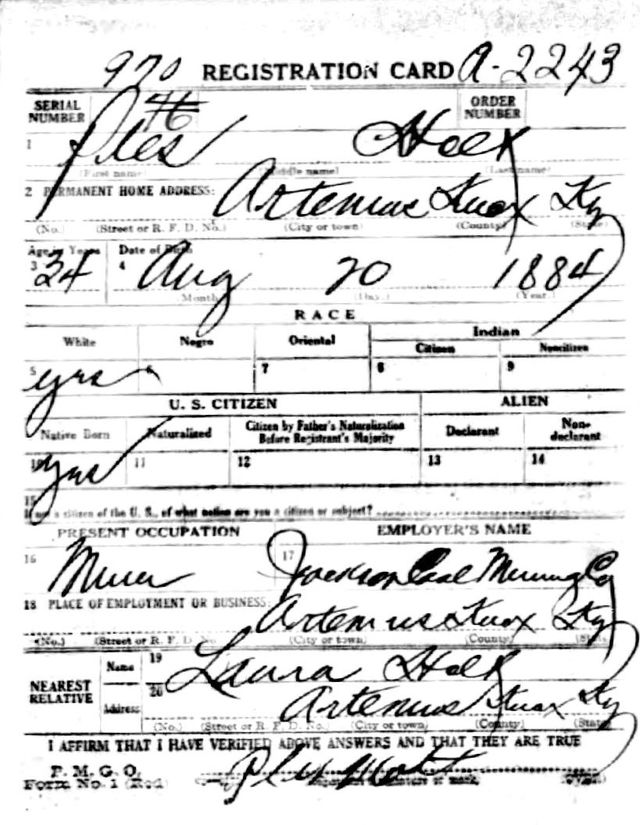 970 REGISTRATION CARD A-2243
SERIAL NUMBER 46 ORDER NUMBER
1 Ples
(First name) (Middle name) (Last name)
2 PERMANENT HOME ADDRESS: Artemus Knox Ky
(No.) (Street or R. F. D. No.) (City or town) (County) (State)
Age in Years Date of Birth
3 34 4 Aug 20 1884
(Month) (Day.) (Year.)
RACE
White Negro Oriental Indian
Citizen Noncitizen
5 yes 6 7 8 9
U. S. CITIZEN ALIEN
Native Born Naturalized Citizen by Father's Naturalization Before Registrant's Majority Declarant Non-declarant
10 yes 11 12 13 14
15
If not a citizen of the U. S., of what nation are you a citizen or subject?
PRESENT OCCUPATION EMPLOYER'S NAME
16 Miner 17 Jackson Coal Mining Co
18 PLACE OF EMPLOYMENT OR BUSINESS: Artemus Knox Ky
(No.) (Street or R. F. D. No.) (City or town) (County) (State)
NEAREST RELATIVE Name 19 Laura
Address 20 Artemus Knox Ky
(No.) (Street or R. F. D. No.) (City or town) (County) (State)
I AFFIRM THAT I HAVE VERIFIED ABOVE ANSWERS AND THAT THEY ARE TRUE
P. M. G. O.
Form No. 1 (Red)